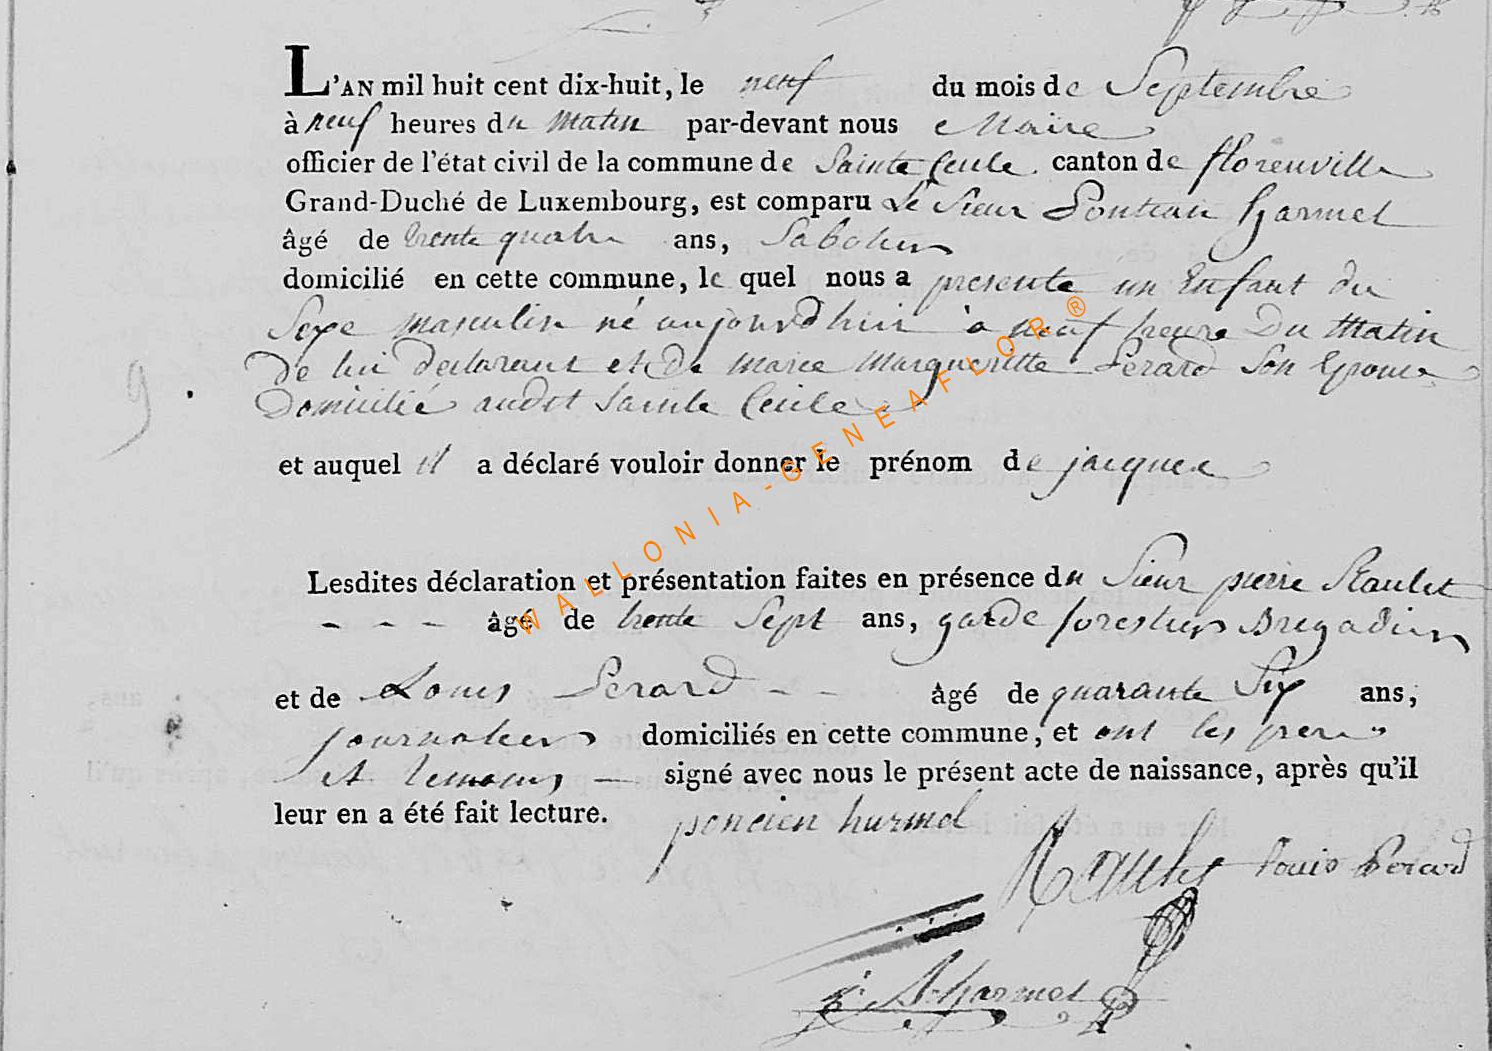 L'AN mil huit cent dix-huit, le neuf du mois de Septembre
à neuf heures du matin par-devant nous Maire
officier de l'état civil de la commune de Sainte Cecile canton de florenville
Grand-Duché de Luxembourg, est comparu Le Sieur Harmel
âgé de trente quatre ans, Sabotier
domicilié en cette commune, le quel nous a presente un Enfant du
Sexe masculin né aujourd'hui à neuf heure Du Matin
De lui declarant et de Marie Margueritte Perard Son Epouse
Domicilié audit Sainte Cecile
9
et auquel il a déclaré vouloir donner le prénom de jacque
Lesdites déclaration et présentation faites en présence du Sieur pierre Raulet
- - - âgé de trente Sept ans, garde forestier Brigadier
et de Louis Perard - - âgé de quarante Six ans,
journalier domiciliés en cette commune, et ont les pere
et temoins — signé avec nous le présent acte de naissance, après qu'il
leur en a été fait lecture. poncien harmel
Louis Perard
Harmel
WALLONIA-GENEAFLOR ®